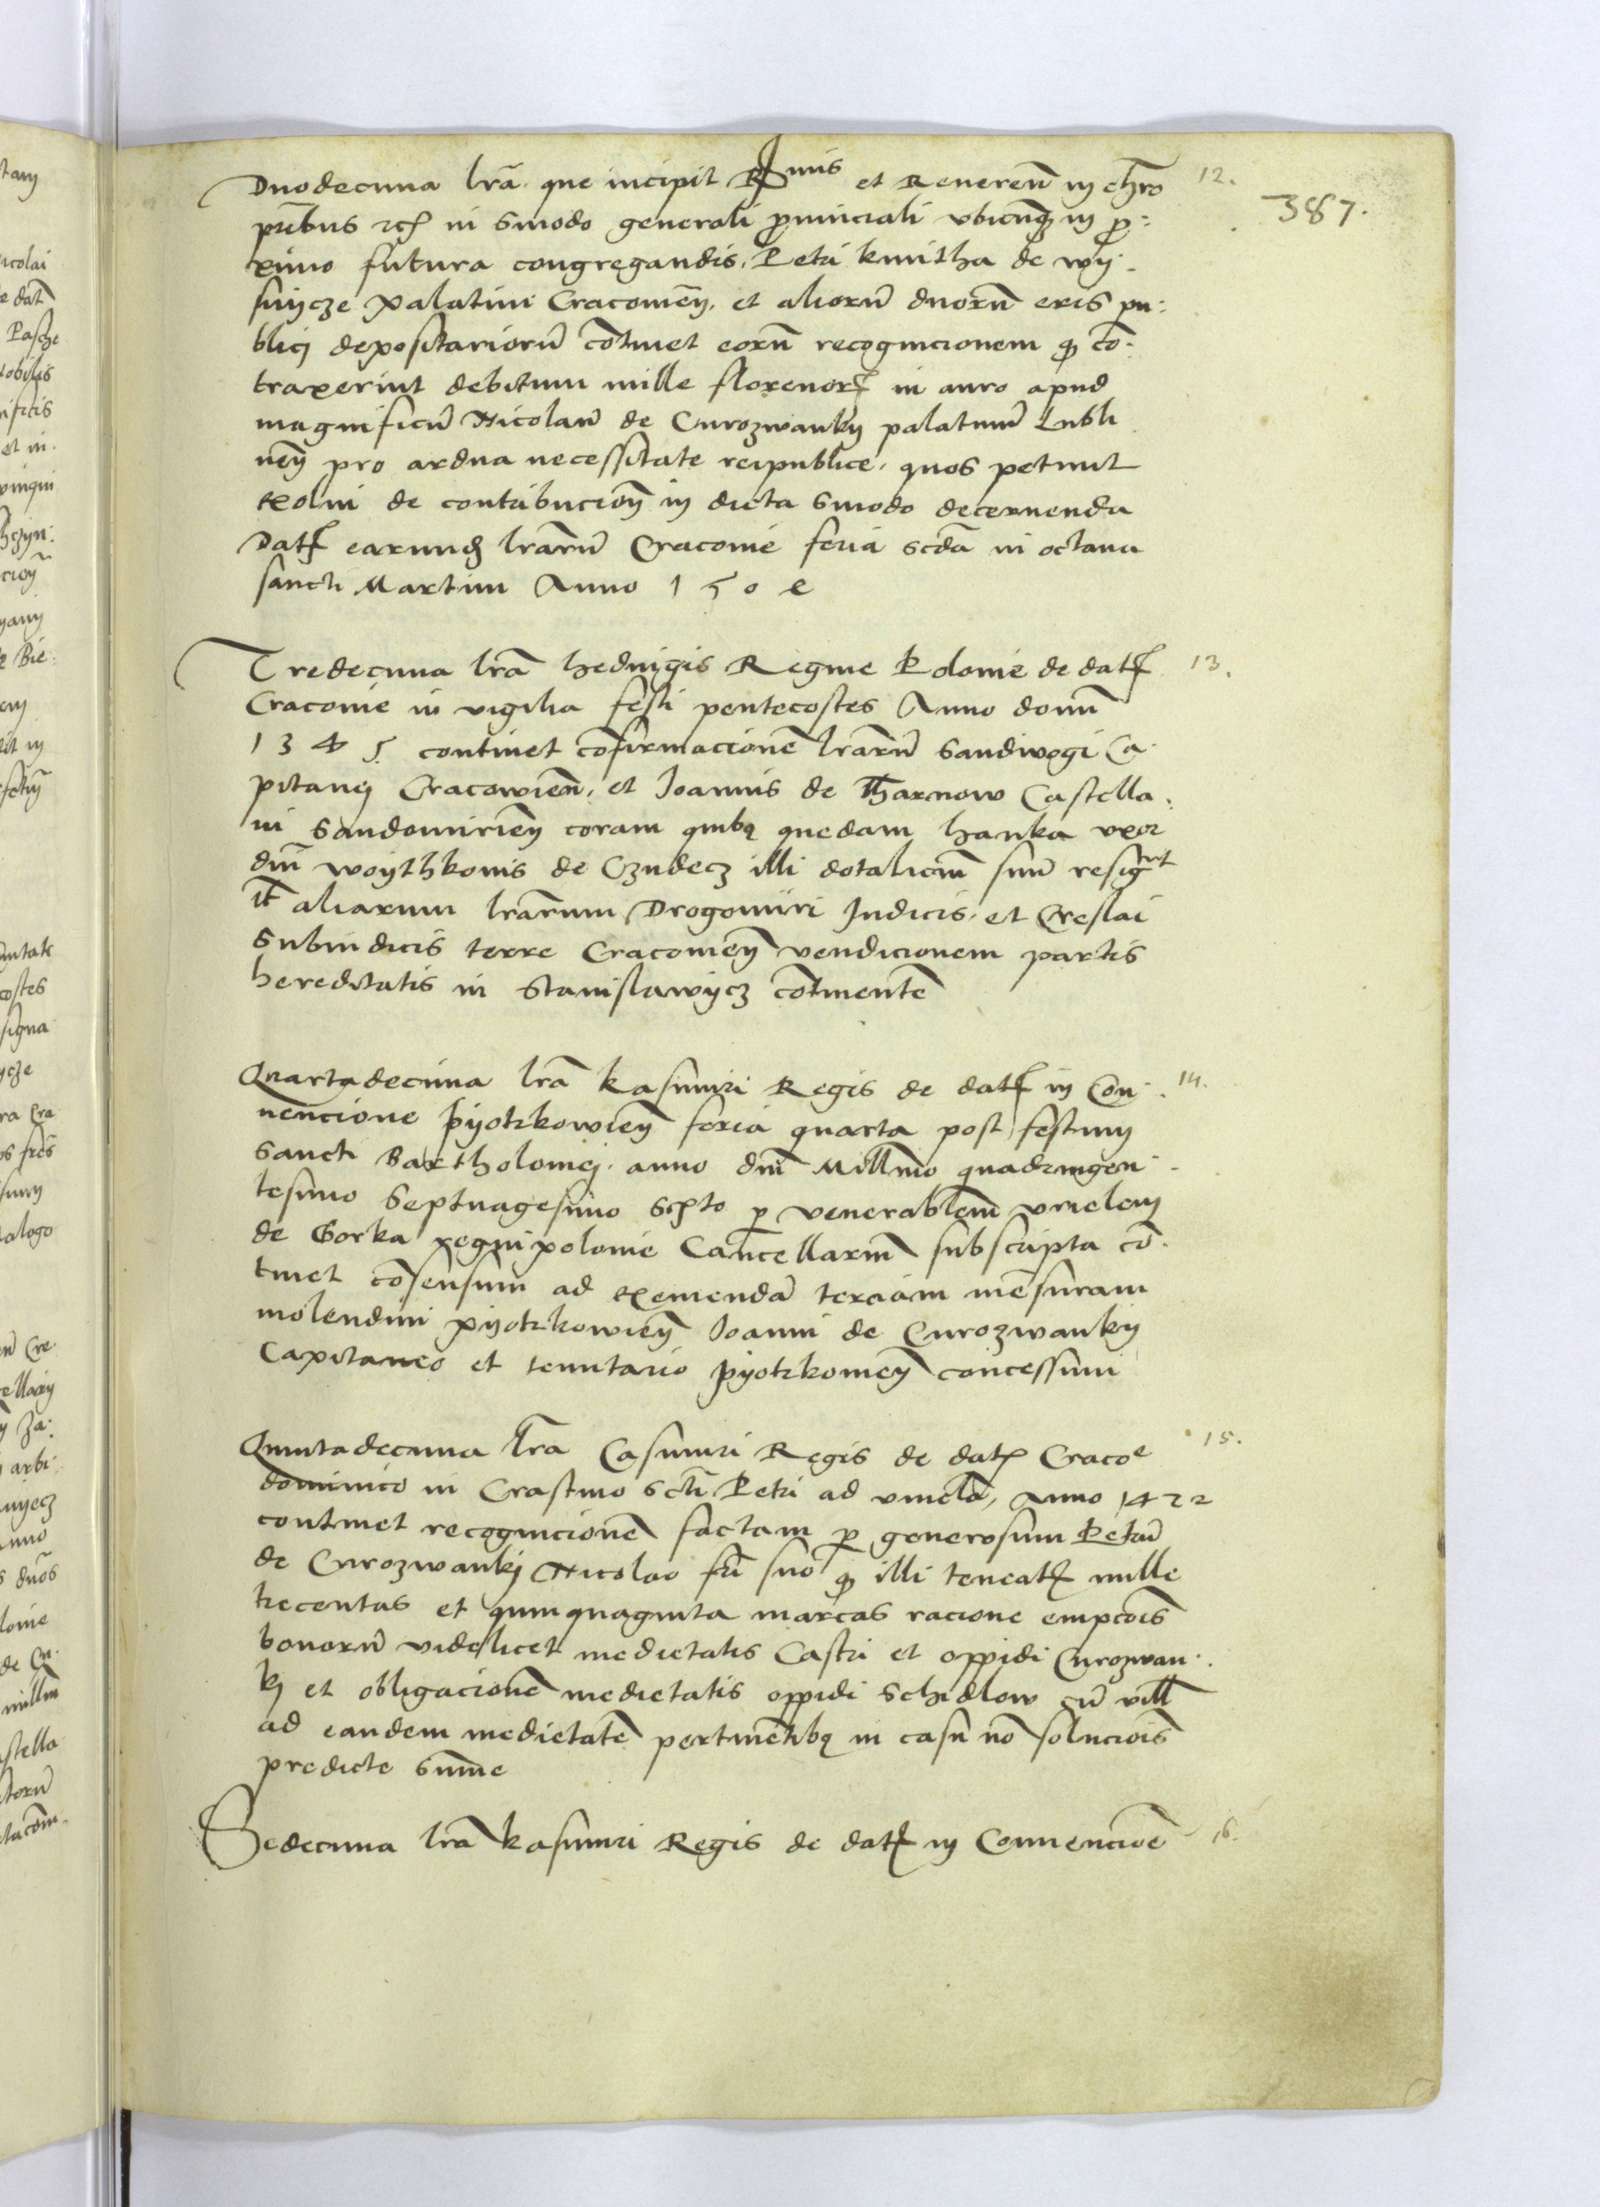 387.
12.
Duodecima lrã que incipit Rmis et Reueren̄ in chr̄o
pr̄ibus etc̄ in sinodo generali prouinciali vbicunq in pro:
ximo futura congregandis. Petri kmitha de wy-
snycze palatini Cracouień. et aliorū duorū eris pu:
blici depositariorū cōtinet eorū recognicionem q cō-
traxerint debitum mille florenor in auro apud
magnificū Nicolaū de Curozwanky palatinū Lubli
nen̄ pro ardua necessitate reipublice. quos petiunt
exolui de contribucion̄ in dicta sinodo decernenda
Dat earund lrārū Cracouie feria scd̄a in octaua
sancti Martini Anno 150
13.
Tredecima lrã heduigis Regine Polonie de dat
Cracouie in vigilia festi pentecostes Anno domī
1345 continet cōfirmacionē lrārū Sandiuogi Ca-
pitanej Cracowien̄. et Joannis de Tharnow Castella:
ni Sandomirien̄ coram quibq quedam hanka vxor
dn̄i woythkonis de Czudecz illi dotaliciū suū resigt
It aliarum lrārum Drogomiri Judicis. et Creslai
Subiudicis terre Cracouien̄ vendicionem partis
hereditatis in Stanislawycz cōtinentē
14.
Quartadecima lrã kasimiri Regis de dat in Con-
uencione pyotrkowien̄ feria quarta post festum
Sancti Bartholomej. anno dn̄i Millm̄o quadringen-
tesimo Septuagesimo p venerablem̄ vrielem
de Gorka regni polonie Cancellariū subscripta cō-
tinet cōsensum ad exemendā terciam mēsuram
molendini pyotrkowien̄ Joanni de Curozwanky
Capitaneo et tenutario pyotrkouien̄ concessum
15.
Quintadecima lrã Casimiri Regis de dat Cracoe
dominico in Crastino Sctī Petri ad vincla, Anno 1472
continet recognicionē factam p generosum Petrū
de Curozwankj Nicolao frī suo q illi teneat mille
trecentas et quinquaginta marcas racione empcōis
bonorū videlicet medietatis Castri et oppidi Curozwan-
kj et obligacionē medietatis oppidi Schidlow cū vill
ad eandem medietatē pertinētibq in casu nō soluciōis
predicte summe
16.
Sedecima lrã kasimiri Regis de dat in Conuenciōe